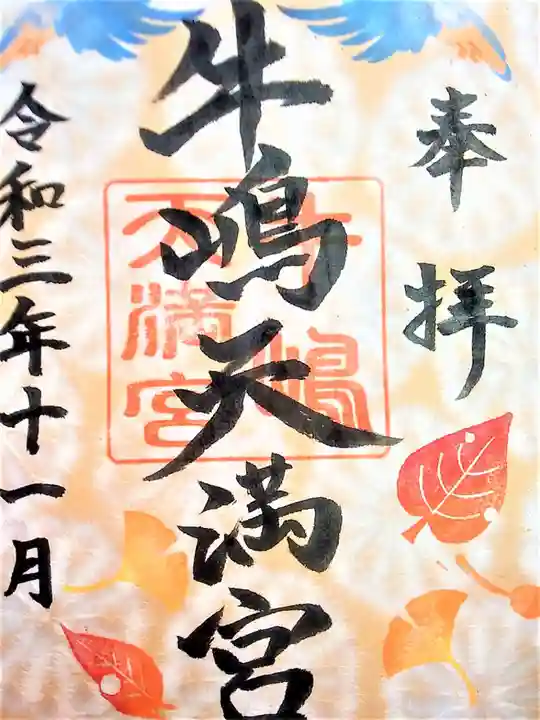 奉拝
牛嶋天満宮
牛嶋
天満宮
令和三年十一月